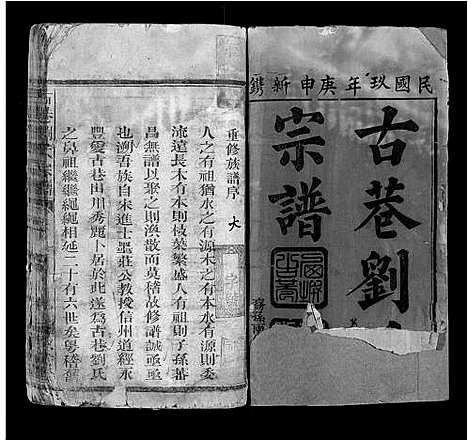 民國玖年庚申新鐫
古巷劉
宗譜
重修族譜序
人之有祖猶水之有源木之有本水有源則委
流遠長木有本則枝葉繁盛人有祖則子孫蕃
昌無譜以聚之則渙散而莫稽故修譜誠亟重
也溯吾族自宋進士墨莊公教授信州道經永
豐愛古巷田川秀麗卜居於此遂為古巷劉氏
之鼻祖繼繼繩繩相延二十有六世矣粵稽